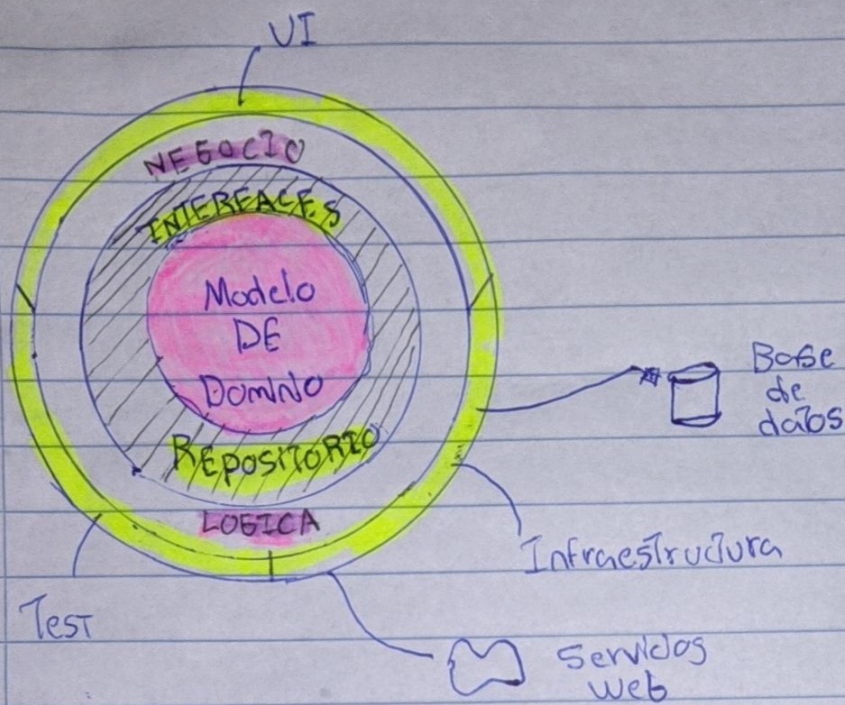 UI
NEGOCIO
INTERFACES
Modelo
DE
Domino
REPOSITORIO
LOGICA
Base
de
datos
Infraestructura
Test
Servicios
web